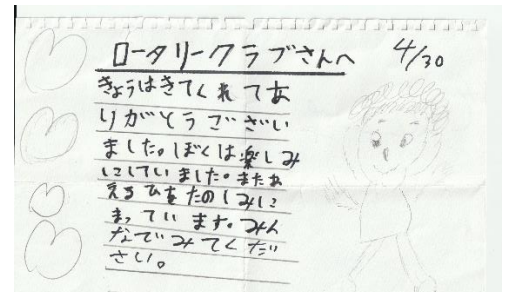 ロータリークラブさんへ 4/30
きょうはきてくれてあ
りがとうござい
ました。ぼくは楽しみ
にしていました。またあ
える日をたのしみに
まっています。みん
なでみてくだ
さい。